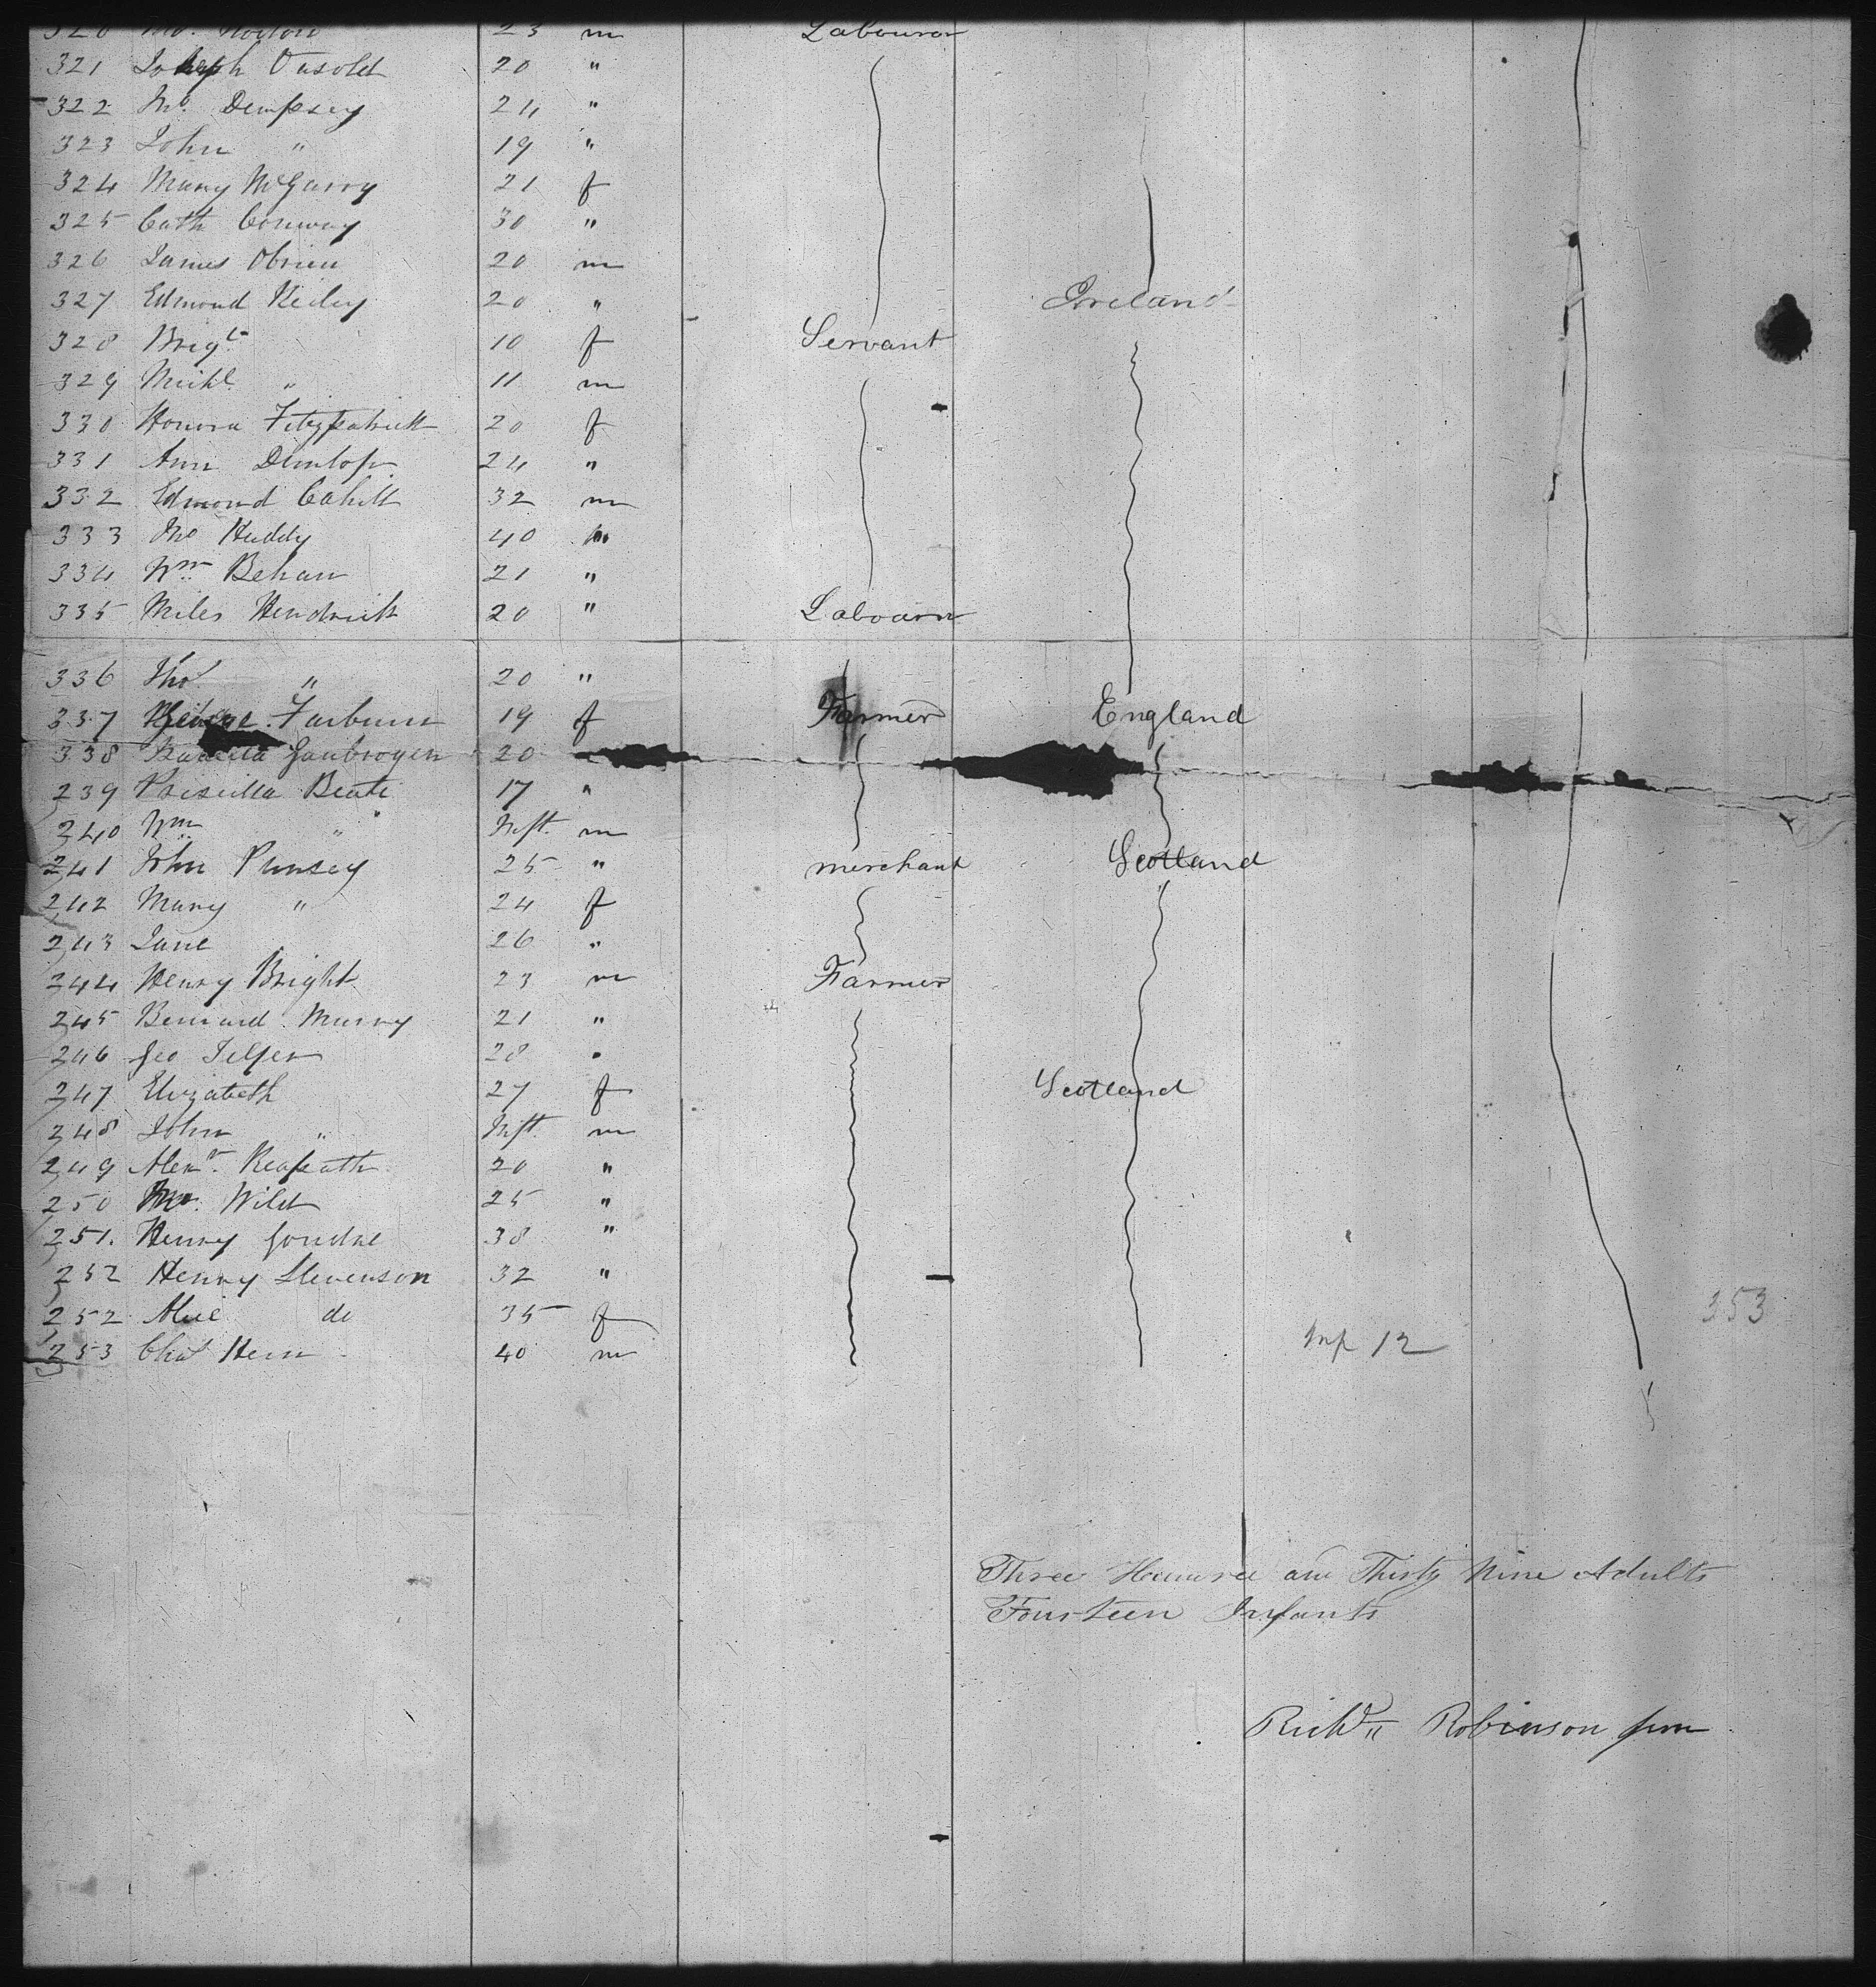 23 m Labourer
321 Joseph 20 "
322 Dempsey 24 "
323 John " 19 "
324 Mary McGarry 21 f
325 Cath Conway 30 "
326 James Obrien 20 m
327 Edmond Keiley 20 " Ireland
328 Brigt 10 f Servant
329 Michl " 11 m
330 Honora Fitzpatrick 20 f
331 Ann Dunlop 24 "
332 Edmond Cahill 32 m
333 Huddy 40 m
334 Wm Behan 21 "
335 Miles Hendrick 20 " Labourer
336 Thos " 20 "
337 19 f Farmer England
338 20
239 Priscilla 17 "
240 Wm " Inft. m
241 John 25 " merchant Scotland
242 Mary " 24 f
243 Jane 26 "
244 Henry Bright 23 m Farmer
245 Bernard Murry 21 "
246 Geo Telfer 28 "
247 Elizabeth 27 f Scotland
248 John " Inft. m
249 20 "
250 25 "
251. Henry 38 "
252 Henry Stevenson 32 "
252 do 35 f 353
253 Chas 40 m Inf 12
Three Hundred and Thirty Nine Adults
Fourteen Infants
Richd " Robinson